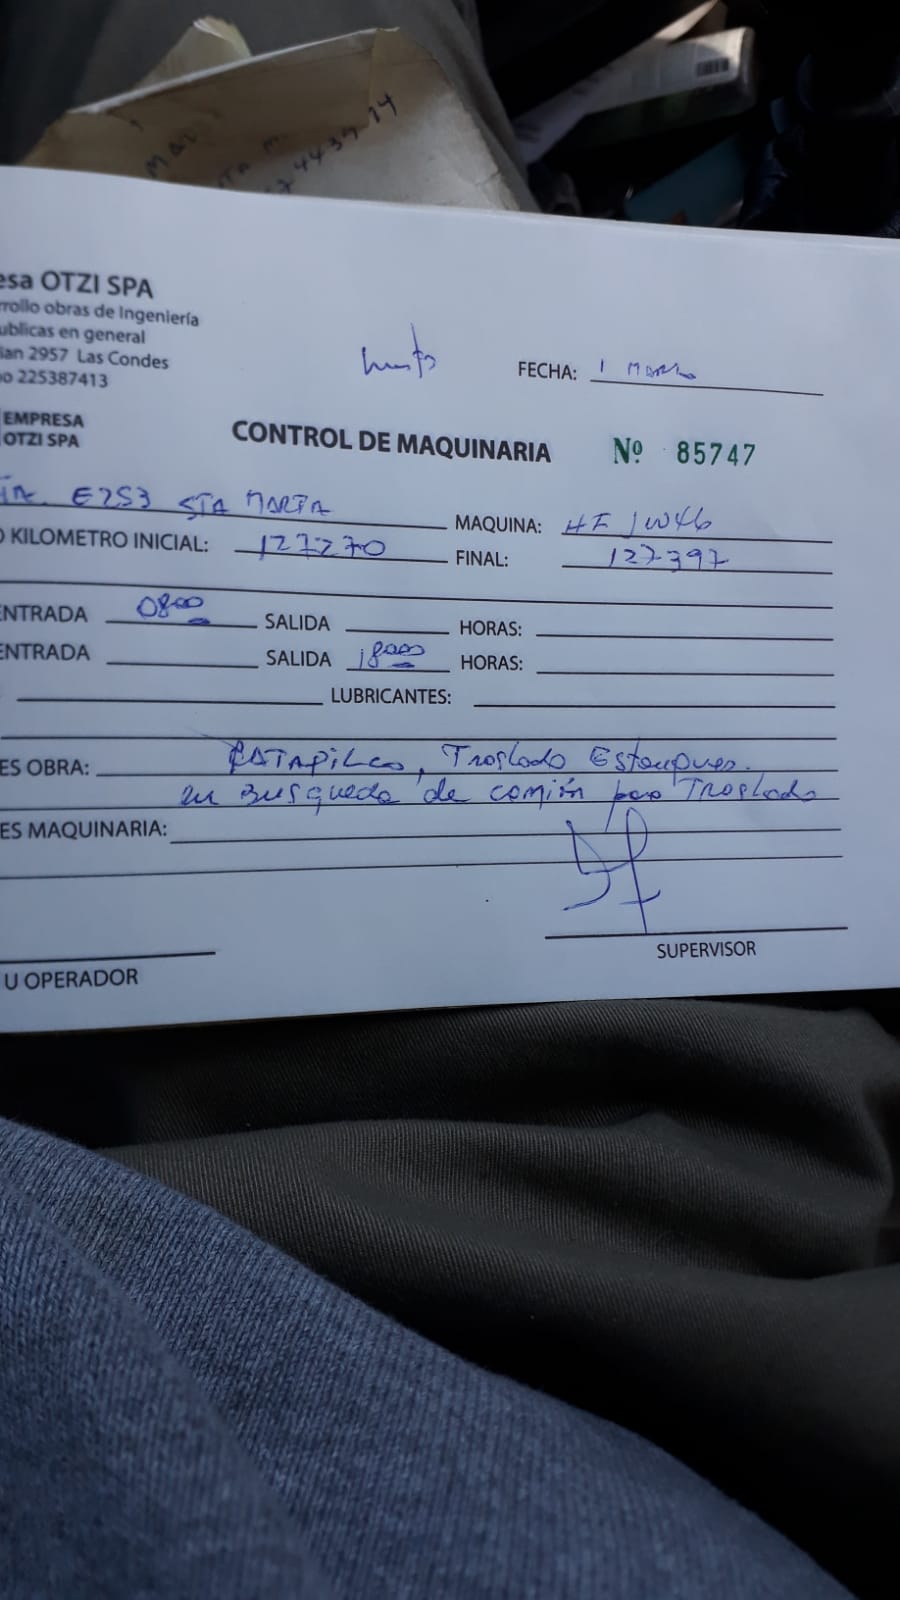 esa OTZI SPA
rrollo obras de Ingeniería
ublicas en general
ian 2957 Las Condes
o 225387413
EMPRESA
OTZI SPA
FECHA: 1 Marzo
CONTROL DE MAQUINARIA Nº 85747
E253 STA MARTA
MAQUINA: HF JW46
O KILOMETRO INICIAL: 127270 FINAL: 127397
ENTRADA 0800 SALIDA HORAS:
ENTRADA SALIDA 1800 HORAS:
LUBRICANTES:
ES OBRA: CATAPILCO, Traslado Estanques.
en Busqueda de camión para Traslado
ES MAQUINARIA:
U OPERADOR
SUPERVISOR